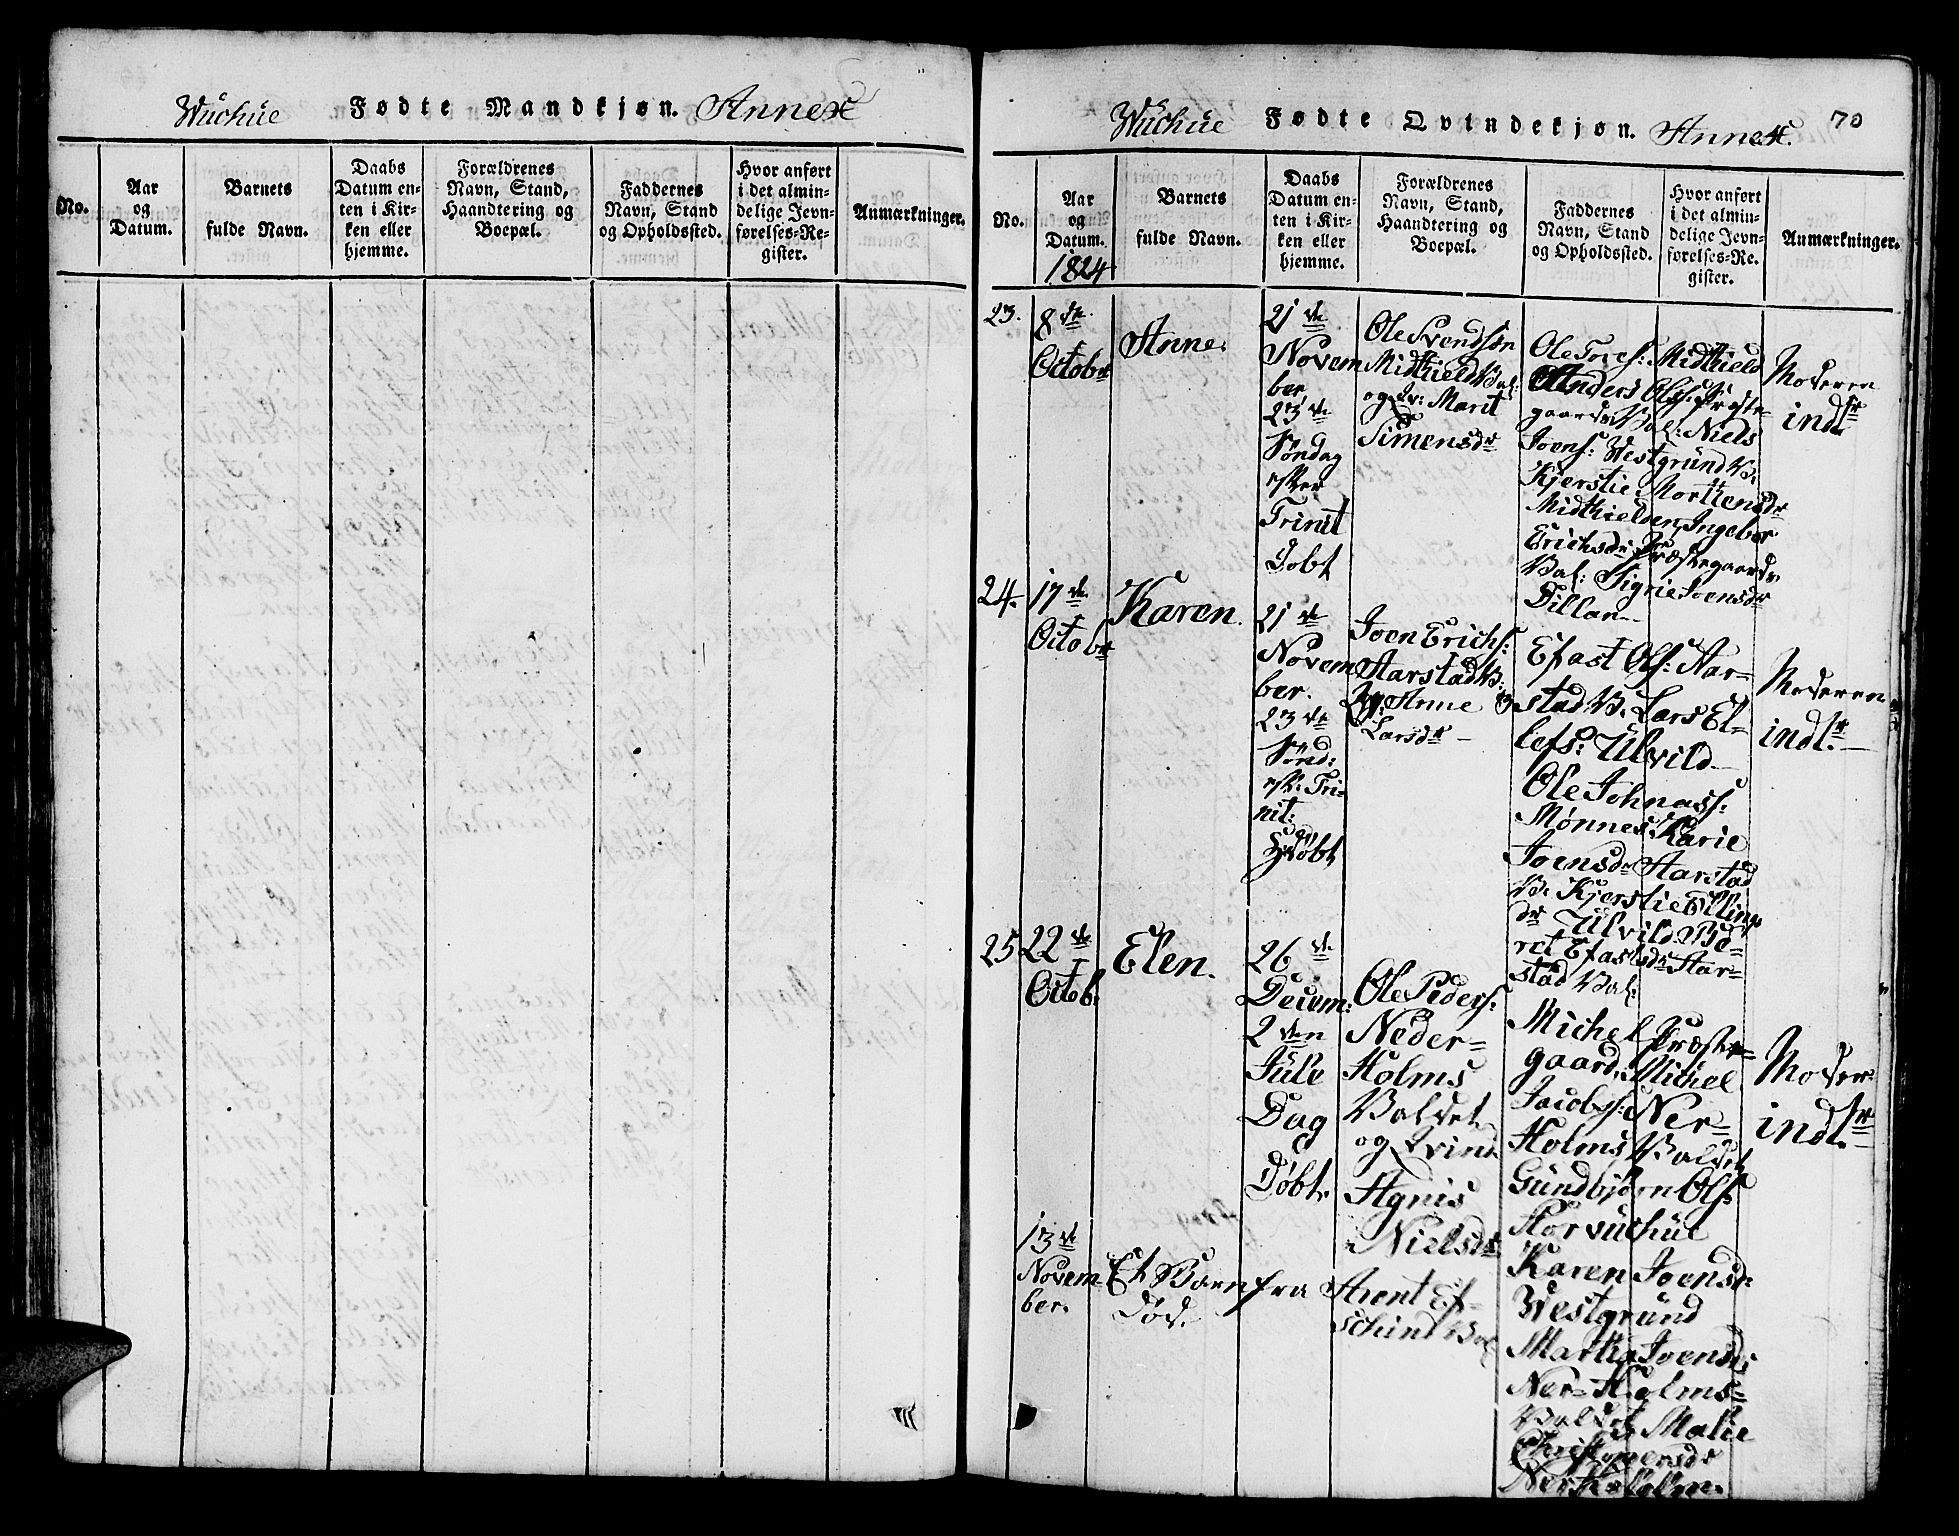 Wuchüe Fødte Mandkjøn. Annex
No.
Aar
og
Datum.
Barnets
fulde Navn.
Daabs
Datum en-
ten i Kir-
ken eller
hjemme.
Forældrenes
Navn, Stand,
Haandtering og
Boepæl.
Faddernes
Navn, Stand
og Opholdssted.
Hvor anført
i det almin-
delige Jevn-
førelses-Re-
gister.
Anmærkninger.
Wuchüe Fødte Qvindekjøn. Annex. 70
No.
Aar
og
Datum.
1824
Barnets
fulde Navn.
Daabs
Datum en-
ten i Kir-
ken eller
hjemme.
Forældrenes
Navn, Stand,
Haandtering og
Boepæl.
Faddernes
Navn, Stand
og Opholdssted.
Hvor anført
i det almin-
delige Jevn-
førelses-Re-
gister.
Anmærkninger.
23.
8de
Octobr
Anne.
21de
Novem
ber
23de
Søndag
efter
Trinit
Døbt
Ole Svendsøn
Midthield Val:
og Qv: Marit
Simensdr
Ole Tores: Midthield
Anders Ols: Præste-
gaards Val: Niels
Joens: Westgrund V.
Kjerstie Morttensdr
Midthielden, Ingebor
Erichsdr Præstegaards
Val: Sigrie Joensdr
Dillan
Moderen
indl.
24.
17de
Octobr
Karen.
21de
November.
23de
Sønd:
eft: Tri-
nit:
Døbt
Joen Erichs:
Aarstad V:
og Anne
Larsdr
Efast Ols: Aar-
stad V. Lars El-
lefs: Ulvild
Ole Johnass:
Mønnes. Karie
Joensdr Aarstad
V. Kjerstie Ellings
dr Ulvild. Be-
ret Efastsdr Aar-
stad Val:
Moderen
indl.
25
22de
Octob.
Elen.
26de
Decem:
2den
Jule
Dag
Døbt.
Ole Peders:
Neder-
Holms
Valdet
og Qvind
Agnis
Nielsdr
Michel Præste-
gaard, Michel
Jacobs: Ner-
Holms Valdet
Gundbjørn Ols:
Storvuchue
Karen Joensd.
Westgrund
Martha Joensd:
Ner-Holms-
Valdet Malie
Christophersdr
Ner-Holm.
Moder.
indl.
13de
Novem
ber.
Et Barn fra
død.
Arent Ef-
schind Val